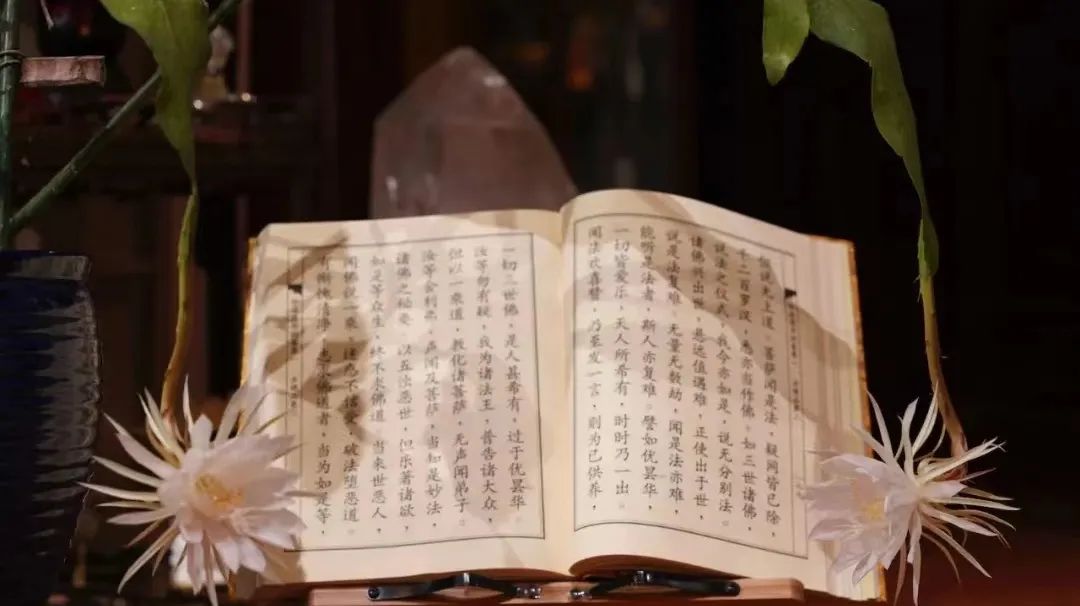 但说无上道。菩萨闻是法，疑网皆已除，
千二百罗汉，悉亦当作佛。如三世诸佛，
说法之仪式，我今亦如是，说无分别法。
诸佛兴出世，悬远值遇难，正使出于世，
说是法复难。无量无数劫，闻是法亦难，
能听是法者，斯人亦复难。譬如优昙华，
一切皆爱乐，天人所希有，时时乃一出。
闻法欢喜赞，乃至发一言，则为已供养，
一切三世佛，是人甚希有，过于优昙华。
汝等勿有疑，我为诸法王，普告诸大众，
但以一乘道，教化诸菩萨，无声闻弟子。
汝等舍利弗，声闻及菩萨，当知是妙法，
诸佛之秘要。以五浊恶世，但乐著诸欲，
如是等众生，终不求佛道。当来世恶人，
闻佛说一乘，迷惑不信受，破法堕恶道。
有惭愧清净，志求佛道者，当为如是等，